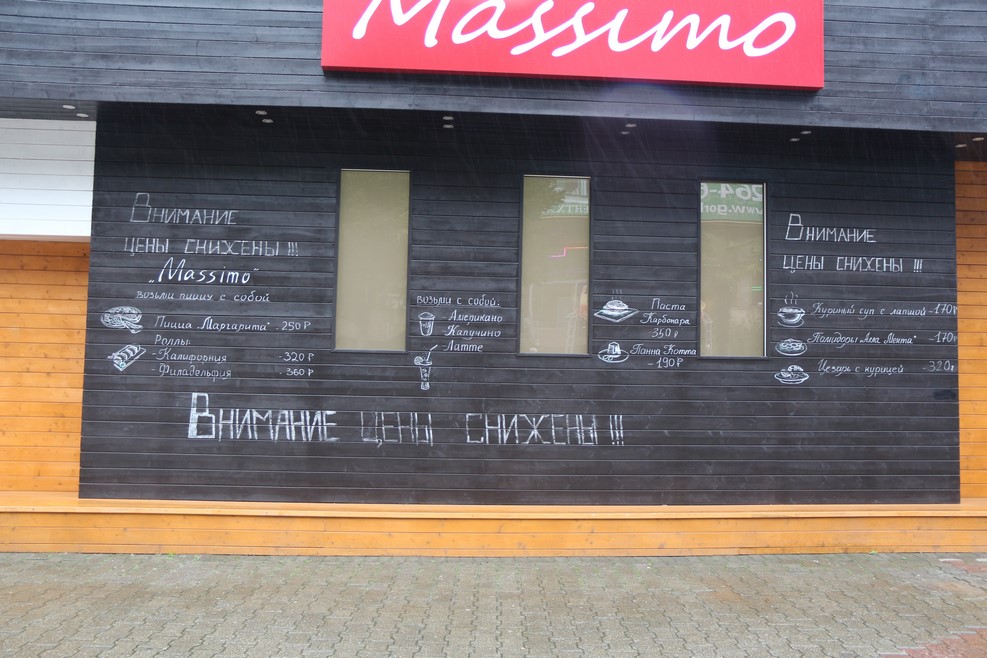 Massimo
Внимание
цены снижены !!!
„Massimo“
возьми пиццу с собой
Пицца „Маргарита“ - 250 ₽
Роллы:
- Калифорния - 320 ₽
- Филадельфия - 360 ₽
возьми с собой:
- Американо
- Капучино
- Латте
Паста
Карбонара
350 ₽
Панна Котта
- 190 ₽
264-6
www.gor
Внимание
цены снижены !!!
Куриный суп с лапшой - 170₽
Помидоры -170₽
Цезарь с курицей - 320₽
Внимание цены снижены !!!